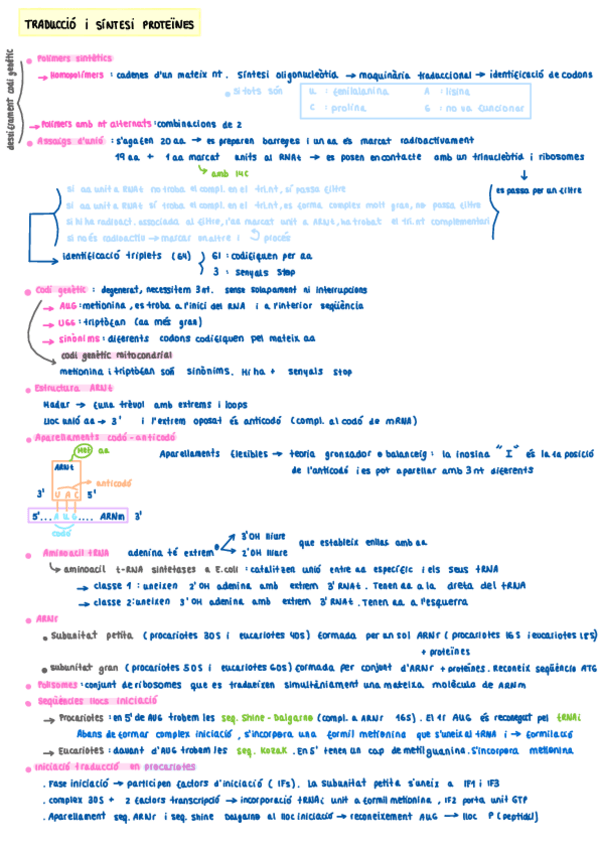 TRADUCCIÓ I SÍNTESI PROTEÏNES
desxiframent codi genètic
• Polímers sintètics
→ Homopolímers: cadenes d'un mateix nt. Síntesi oligonucleòtia → maquinària traduccional → identificació de codons
• Si tots són
U : fenilalanina A : lisina
C : prolina G : no va funcionar
→ Polímers amb nt alternats: combinacions de 2
• Assaigs d'unió: s'agafen 20 aa → es preparen barreges i un aa és marcat radioactivament
19 aa + 1 aa marcat units al RNAt → es posen en contacte amb un trinucleòtid i ribosomes
amb 14C
es passa per un filtre
si aa unit a RNAt no troba el compl. en el tri.nt, sí passa filtre
si aa unit a RNAt sí troba el compl. en el tri.nt, es forma complex molt gran, no passa filtre
si hi ha radioact. associada al filtre, l'aa marcat unit a ARNt, ha trobat el tri.nt complementari
si no és radioactiu → marcar un altre i procés
identificació triplets (64) 61 : codifiquen per aa
3 : senyals stop
• Codi genètic : degenerat, necessitem 3nt. sense solapament ni interrupcions
→ AUG: metionina, es troba a l'inici del RNA i a l'interior seqüència
→ UGG: triptòfan (aa més gran)
→ sinònims: diferents codons codifiquen pel mateix aa
codi genètic mitocondrial
metionina i triptòfan són sinònims. Hi ha + senyals stop
• Estructura ARNt
Madur → funa trèvol amb extrems i loops
Lloc unió aa → 3' i l'extrem oposat és anticodó (compl. al codó de mRNA)
• Aparellaments codó-anticodó
Met aa
ARNt
anticodó
3' U A C 5'
5'... A U G .... ARNm 3'
codó
Aparellaments flexibles → teoria gronxador o balanceig: la inosina "I" és la 1a posició
de l'anticodó i es pot aparellar amb 3 nt diferents
• Aminoacil tRNA adenina té extrem 3'OH lliure
2'OH lliure
que estableix enllaç amb aa
aminoacil t-RNA sintetases a E.coli: catalitzen unió entre aa específic i els seus tRNA
→ classe 1: uneixen 2'OH adenina amb extrem 3'RNAt. Tenen aa a la dreta del tRNA
→ classe 2: uneixen 3'OH adenina amb extrem 3'RNAt. Tenen aa a l'esquerra
• ARNr
• Subunitat petita (procariotes 30S i eucariotes 40S) formada per un sol ARNr (procariotes 16S i eucariotes 18S)
+ proteïnes
• subunitat gran (procariotes 50S i eucariotes 60S) formada per conjunt d'ARNr + proteïnes. Reconeix seqüència ATG
• Polisomes: conjunt de ribosomes que es tradueixen simultàniament una mateixa molècula de ARNm
• Seqüències llocs iniciació
→ Procariotes: en 5' de AUG trobem les seq. Shine-Dalgarno (compl. a ARNr 16S). El 1r AUG és reconegut pel tRNAi
Abans de formar complex iniciació, s'incorpora una formil metionina que s'uneix al tRNA i → formilació
→ Eucariotes: davant d'AUG trobem les seq. Kozak. En 5' tenen un cap de metilguanina. S'incorpora metionina
• Iniciació traducció en procariotes
. Fase iniciació → participen factors d'iniciació (IFs). La subunitat petita s'uneix a IF1 i IF3
. complex 30S + 2 factors transcripció → incorporació tRNAi unit a formil metionina, IF2 porta unit GTP
. Aparellament seq. ARNr i seq. Shine Dalgarno al lloc iniciació → reconeixement AUG → lloc P (peptidil)